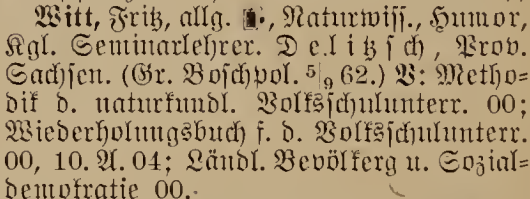 Witt, Fritz, allg. Naturwiss., Humor,
Kgl. Seminarlehrer. Delitzsch, Prov.
Sachsen. (Gr. Boschpol. 5/9 62.) V: Metho-
dik d. naturkundl. Volksschulunterr. 00;
Wiederholungsbuch f. d. Volksschulunterr.
00, 10. A. 04; Ländl. Bevölkerg u. Sozial-
demokratie 00.